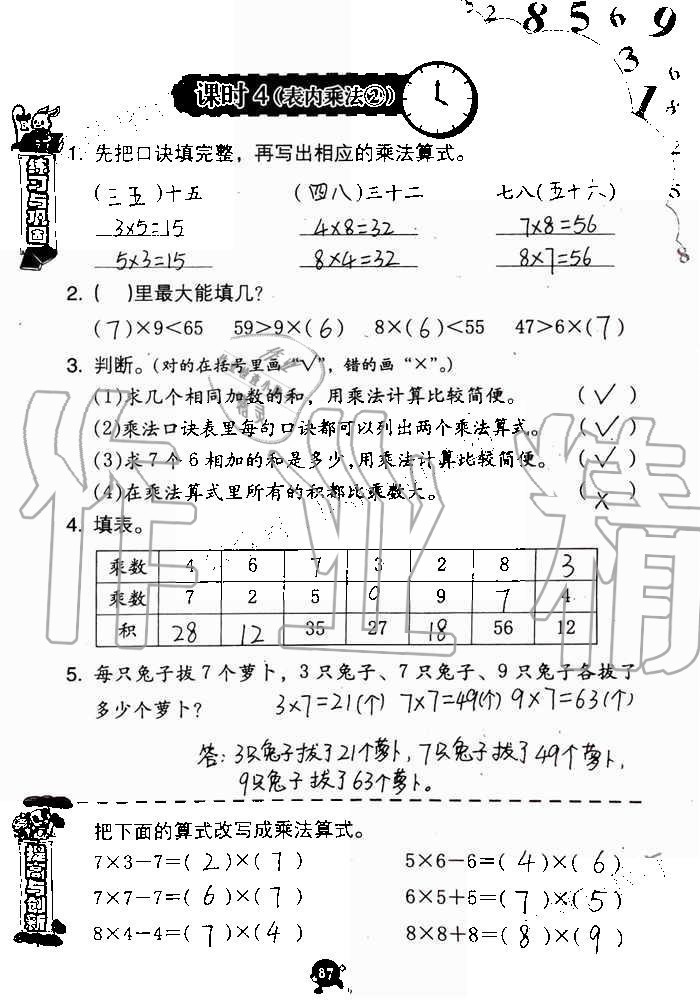 3 2 8 5 6 9
3 6
1 8
2
5
8
课时4(表内乘法②)
练习与巩固
1. 先把口诀填完整，再写出相应的乘法算式。
(三五)十五 (四八)三十二 七八(五十六)
3×5=15 4×8=32 7×8=56
5×3=15 8×4=32 8×7=56
2. ( )里最大能填几?
(7)×9<65 59>9×(6) 8×(6)<55 47>6×(7)
3. 判断。(对的在括号里画“√”，错的画“×”。)
(1)求几个相同加数的和，用乘法计算比较简便。 (√)
(2)乘法口诀表里每句口诀都可以列出两个乘法算式。 (√)
(3)求7个6相加的和是多少,用乘法计算比较简便。 (√)
(4)在乘法算式里所有的积都比乘数大。 (×)
4. 填表。
乘数 4 6 7 3 2 8 3
乘数 7 2 5 9 9 7 4
积 28 12 35 27 18 56 12
5. 每只兔子拔7个萝卜，3只兔子、7只兔子、9只兔子各拔了
多少个萝卜? 3×7=21(个) 7×7=49(个) 9×7=63(个)
答：3只兔子拔了21个萝卜，7只兔子拔了49个萝卜，
9只兔子拔了63个萝卜。
提高与创新
把下面的算式改写成乘法算式。
7×3-7=(2)×(7) 5×6-6=(4)×(6)
7×7-7=(6)×(7) 6×5+5=(7)×(5)
8×4-4=(7)×(4) 8×8+8=(8)×(9)
87
作业精